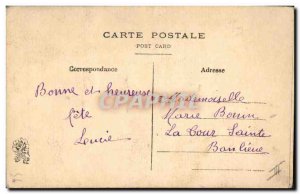 CARTE POSTALE
POST CARD
Correspondance
Adresse
Bonne et heureuse
fête
Lucie
Mademoiselle
Marie Bonin
La Cour Sainte
Banlieue